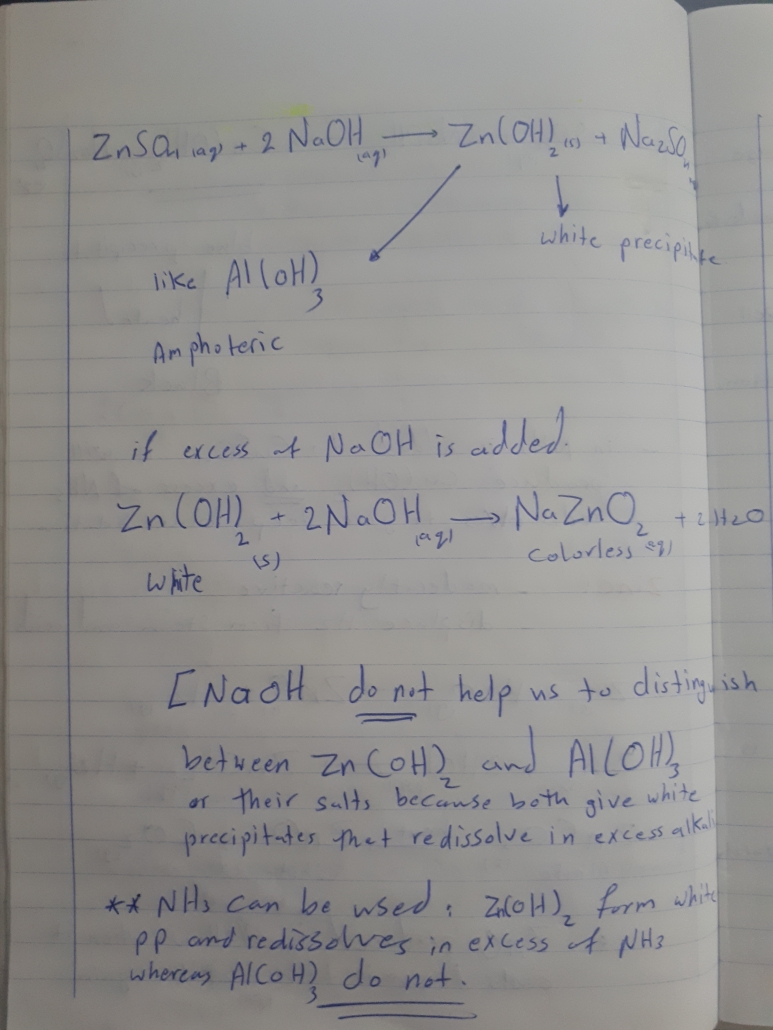 ZnSO4 (aq) + 2 NaOH (aq) → Zn(OH)2 (s) + Na2SO4
white precipitate
like Al(OH)3
Amphoteric
if excess of NaOH is added.
Zn(OH)2 (s) + 2NaOH (aq) → NaZnO2 (aq) + 2H2O
white colorless
[NaOH do not help us to distinguish
between Zn(OH)2 and Al(OH)3
or their salts because both give white
precipitates that redissolve in excess alkali
** NH3 can be used : Zn(OH)2 form white
pp and redissolves in excess of NH3
whereas Al(OH)3 do not.